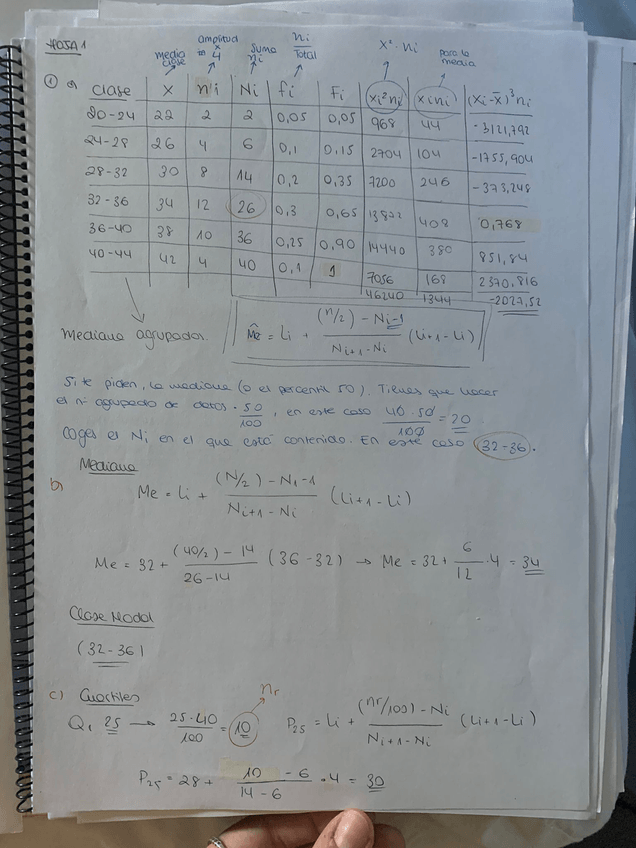 HOJA 1
media clase
amplitud
4
suma ni
ni / Total
x² · ni
para la media
① a) clase | x | ni | Ni | fi | Fi | xi² ni | xi ni | (xi - x̄)³ ni
20-24 | 22 | 2 | 2 | 0,05 | 0,05 | 968 | 44 | -3121,792
24-28 | 26 | 4 | 6 | 0,1 | 0,15 | 2704 | 104 | -1755,904
28-32 | 30 | 8 | 14 | 0,2 | 0,35 | 7200 | 240 | -373,248
32-36 | 34 | 12 | 26 | 0,3 | 0,65 | 13872 | 408 | 0,768
36-40 | 38 | 10 | 36 | 0,25 | 0,90 | 14440 | 380 | 851,84
40-44 | 42 | 4 | 40 | 0,1 | 1 | 7056 | 168 | 2370,816
46240 | 1344 | -2027,52
Mediana agrupados.
Me = Li + (n/2) - Ni-1 / Ni+1 - Ni (Li+1 - Li)
Si te piden, la mediana (o el percentil 50). Tienes que hacer
el nº agrupado de datos · 50/100, en este caso 40 · 50 / 100 = 20
Coges el Ni en el que está contenido. En este caso (32-36).
Mediana
b) Me = Li + (N/2) - Ni-1 / Ni+1 - Ni (Li+1 - Li)
Me = 32 + (40/2) - 14 / 26-14 (36-32) → Me = 32 + 6/12 · 4 = 34
Clase Modal
(32-36)
c) Cuartiles
nr
Q1 25 → 25·40 / 100 = 10 P25 = Li + (nr/100) - Ni / Ni+1 - Ni (Li+1 - Li)
P25 = 28 + 10 - 6 / 14 - 6 · 4 = 30